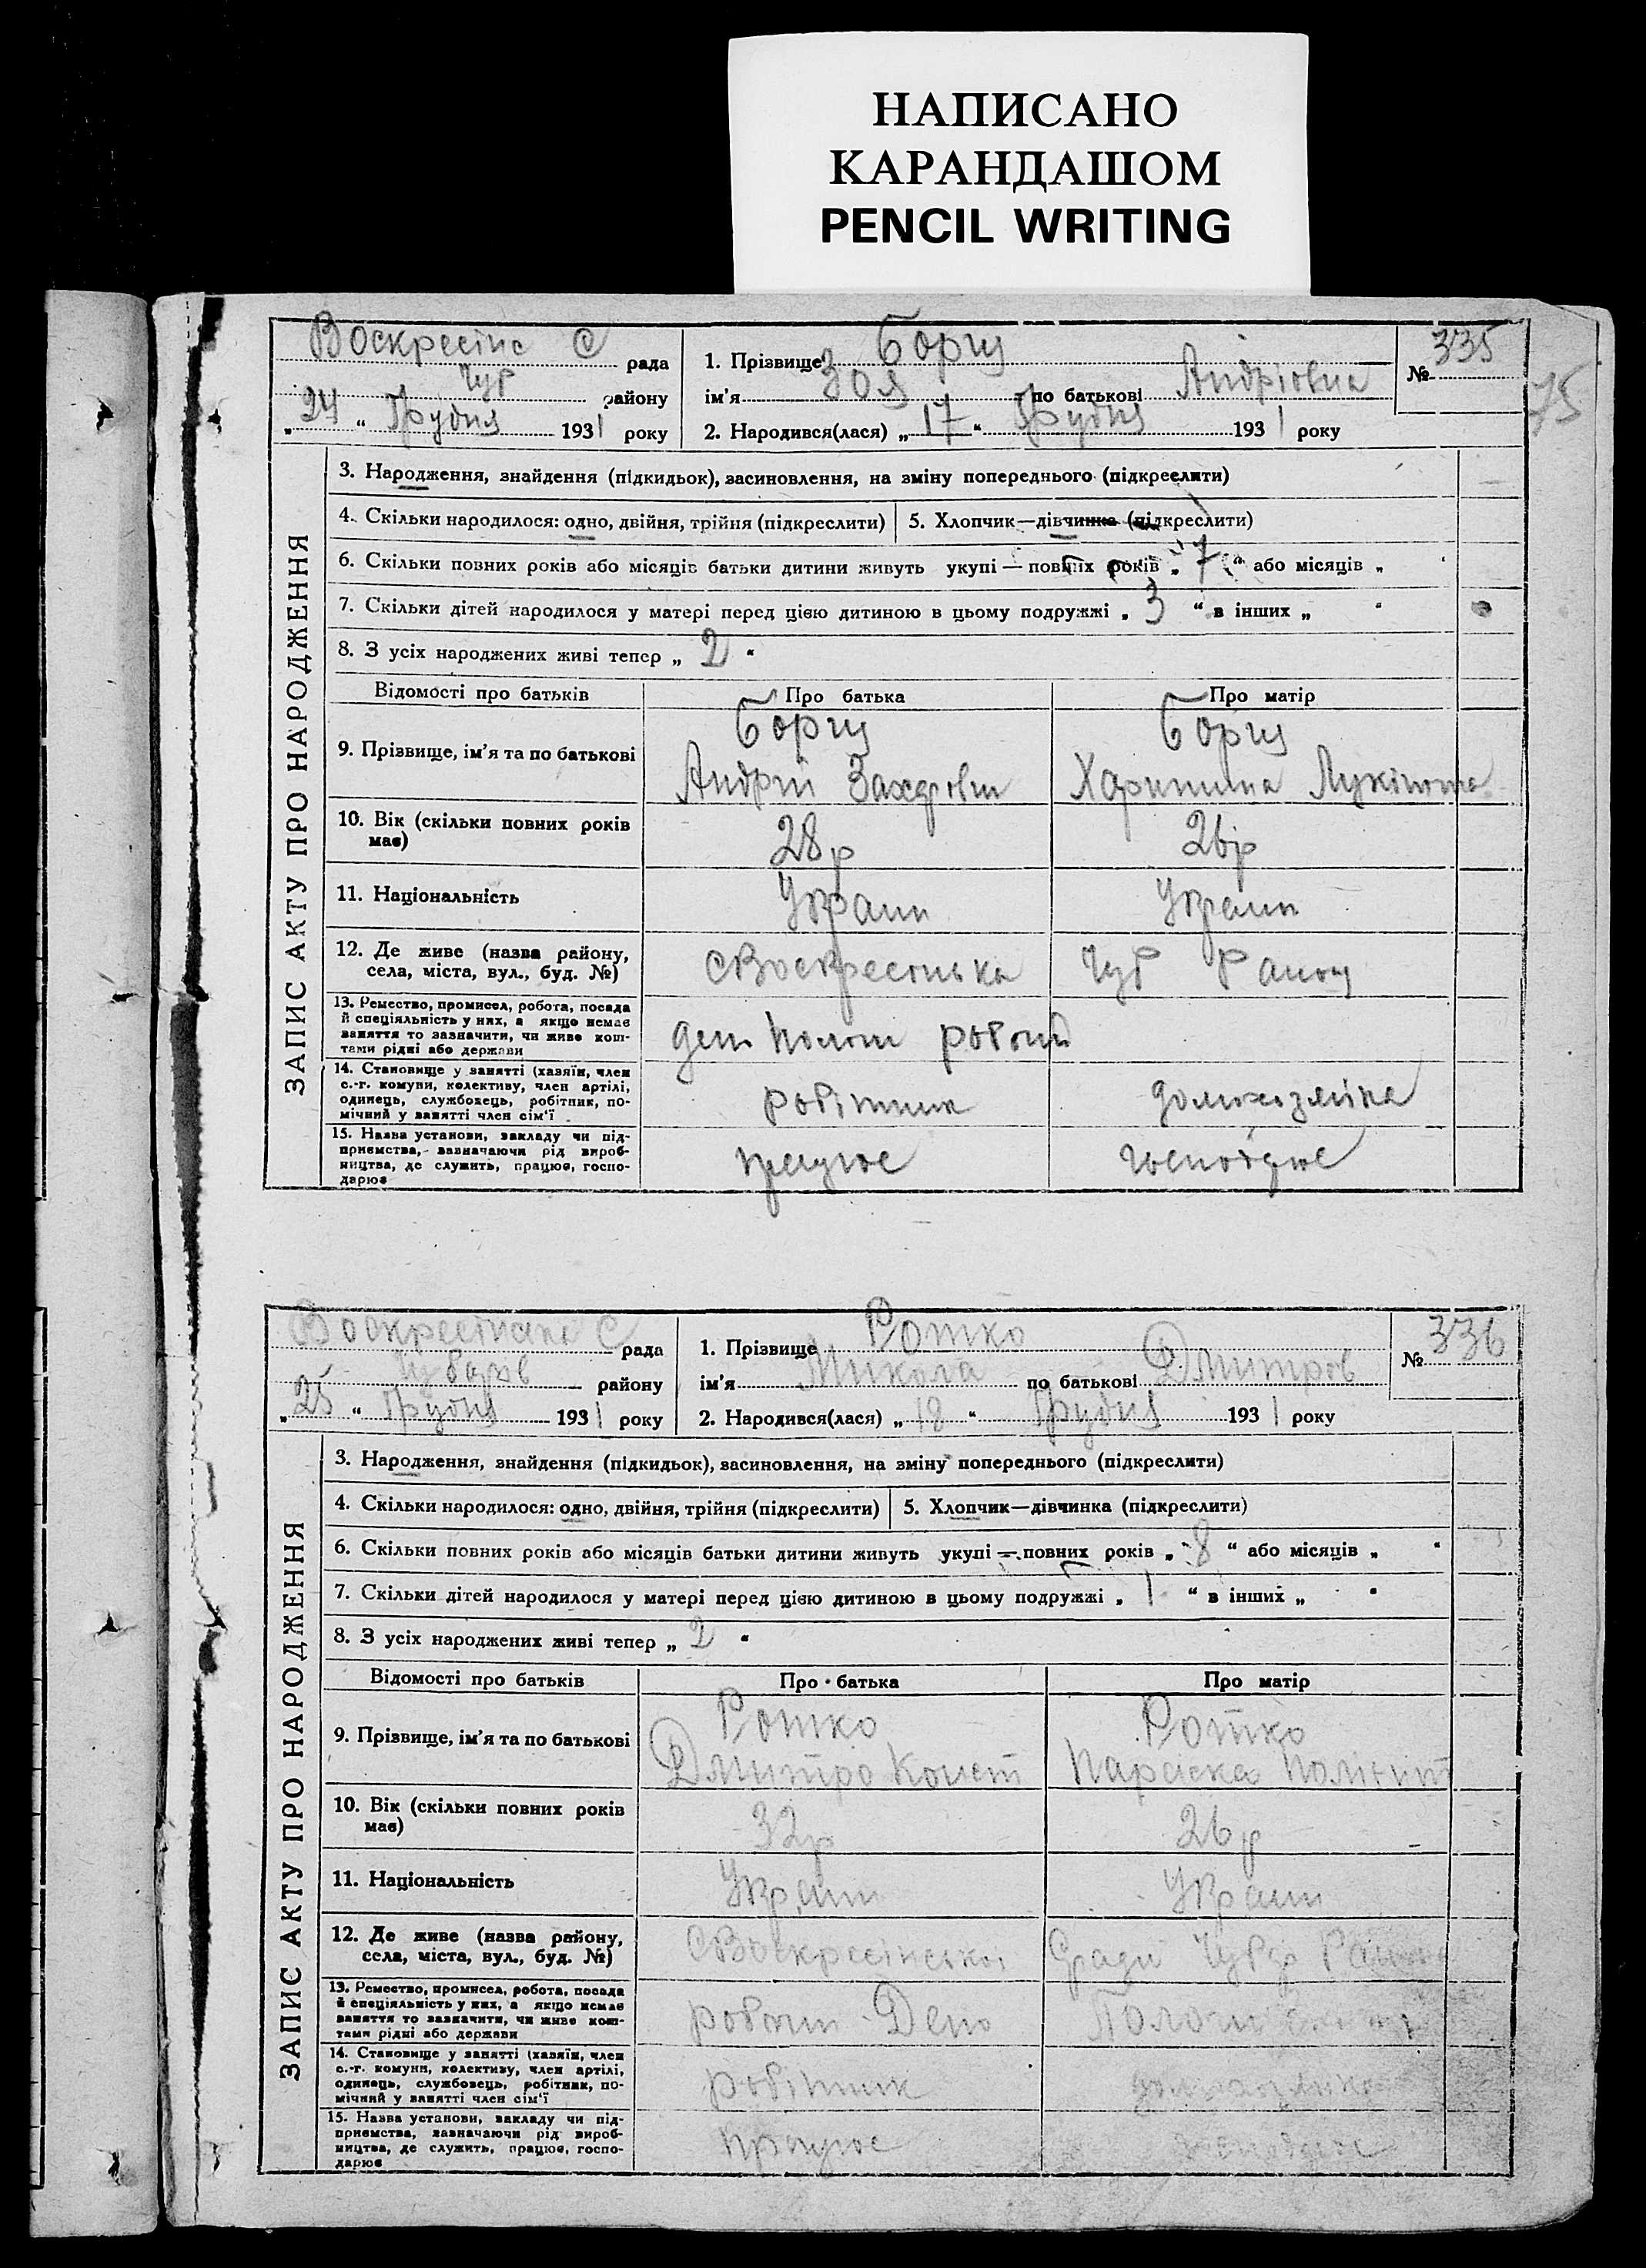 НАПИСАНО
КАРАНДАШОМ
PENCIL WRITING
Воскресінс С рада
Чуб району
„ 24 “ Грудня 1931 року
1. Прізвище Борщ
ім'я Зоя по батькові Андріовна
2. Народився(лася) „ 17 “ Грудня 1931 року
№ 335
75
ЗАПИС АКТУ ПРО НАРОДЖЕННЯ
3. Народження, знайдення (підкидьок), засиновлення, на зміну попереднього (підкреслити)
4. Скільки народилося: одно, двійня, трійня (підкреслити) 5. Хлопчик—дівчинка (підкреслити)
6. Скільки повних років або місяців батьки дитини живуть укупі — повних років „ 7 “ або місяців „ “
7. Скільки дітей народилося у матері перед цією дитиною в цьому подружжі „ 3 “ в інших „ “
8. З усіх народжених живі тепер „ 2 “
Відомості про батьків Про батька Про матір
9. Прізвище, ім'я та по батькові
Борщ Борщ
Андрій Захарович Харитина
10. Вік (скільки повних років має) 28р 26р
11. Національність Україн Україн
12. Де живе (назва району, села, міста, вул., буд. №)
13. Ремество, промисел, робота, посада
й спеціяльність у них, а якщо немає
заняття то зазначити, чи живе кош-
тами рідні або держави
14. Становище у занятті (хазяїн, член
с.-г. комуни, колективу, член артілі,
одинець, службовець, робітник, по-
мічний у занятті член сім'ї
робітник домохозяйка
15. Назва установи, закладу чи під-
приємства, зазначаючи рід вироб-
ництва, де служить, працює, госпо-
дарює
працює
Воскресінська С рада
району
„ 25 “ Грудня 1931 року
1. Прізвище Ротко
ім'я Микола по батькові Дмитров
2. Народився(лася) „ 18 “ Грудня 1931 року
№ 336
ЗАПИС АКТУ ПРО НАРОДЖЕННЯ
3. Народження, знайдення (підкидьок), засиновлення, на зміну попереднього (підкреслити)
4. Скільки народилося: одно, двійня, трійня (підкреслити) 5. Хлопчик—дівчинка (підкреслити)
6. Скільки повних років або місяців батьки дитини живуть укупі — повних років „ 8 “ або місяців „ “
7. Скільки дітей народилося у матері перед цією дитиною в цьому подружжі „ 1 “ в інших „ “
8. З усіх народжених живі тепер „ 2 “
Відомості про батьків Про батька Про матір
9. Прізвище, ім'я та по батькові
Ротко Ротко
Дмитро Конст Параска
10. Вік (скільки повних років має) 32р 26р
11. Національність Україн Україн
12. Де живе (назва району, села, міста, вул., буд. №)
13. Ремество, промисел, робота, посада
й спеціяльність у них, а якщо немає
заняття то зазначити, чи живе кош-
тами рідні або держави
Депо
14. Становище у занятті (хазяїн, член
с.-г. комуни, колективу, член артілі,
одинець, службовець, робітник, по-
мічний у занятті член сім'ї
робітник
15. Назва установи, закладу чи під-
приємства, зазначаючи рід вироб-
ництва, де служить, працює, госпо-
дарює
працює